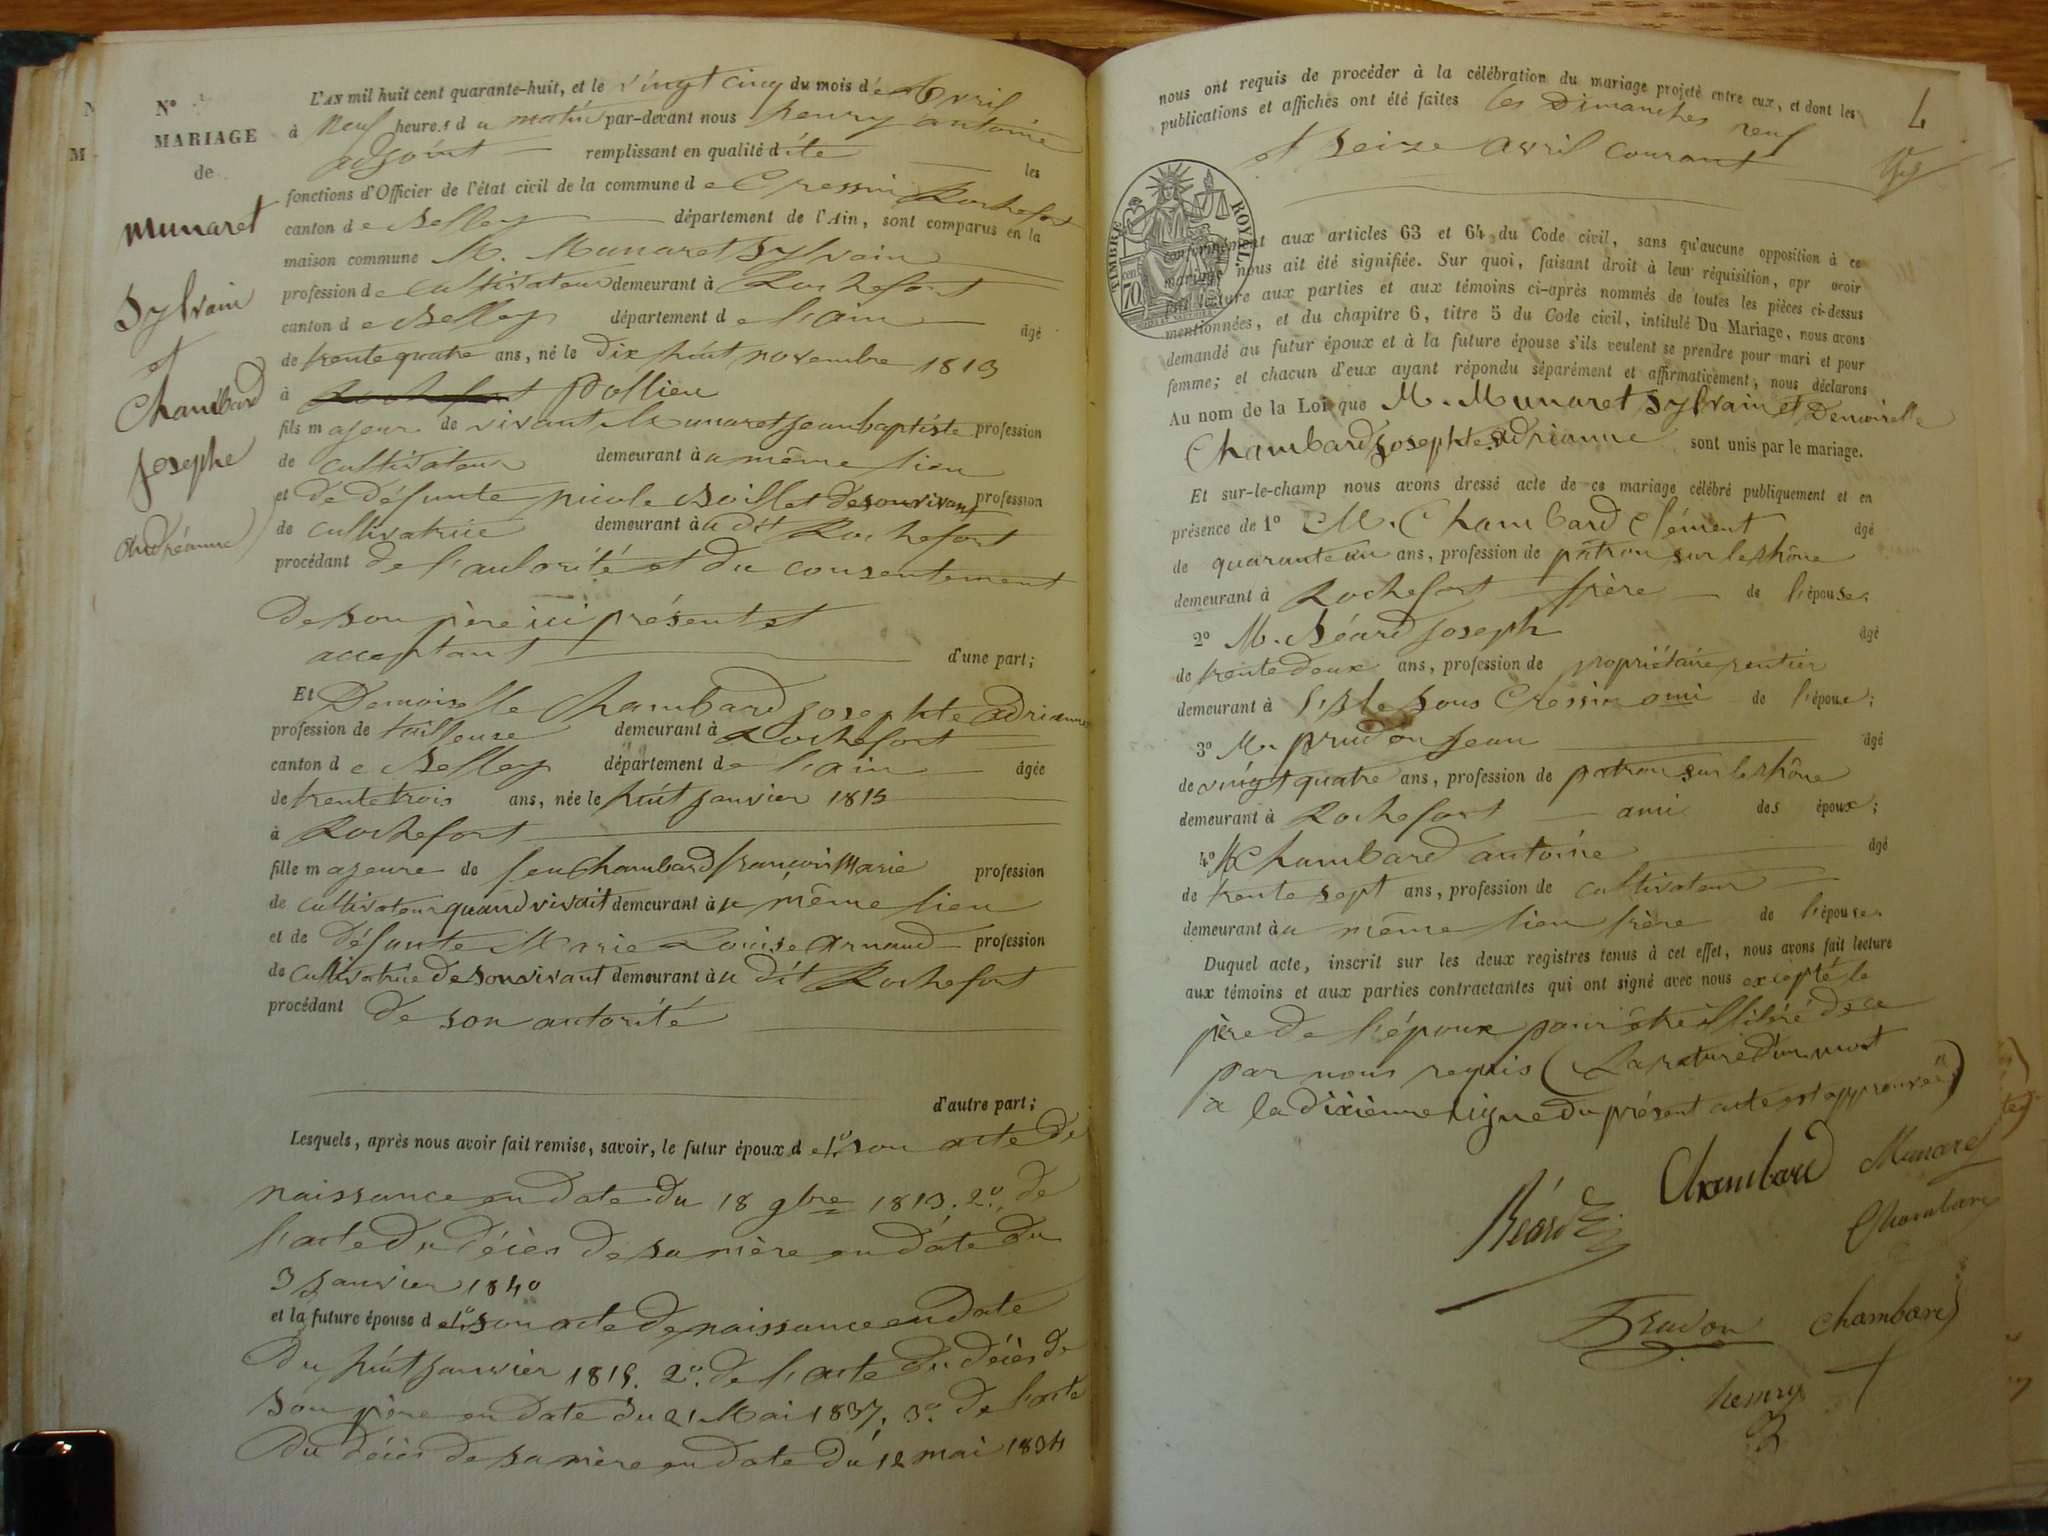 N°
MARIAGE
de
Munaret
Sylvain
et
Chambard
Josephe
Andréanne
L'AN mil huit cent quarante-huit, et le vingt cinq du mois d'Avril
à Neuf heures du matin par-devant nous henry antoine
adjoint remplissant en qualité d'ite les
fonctions d'Officier de l'état civil de la commune de Cressin Rochefort
canton de Belley département de l'Ain, sont comparus en la
maison commune M. Munaret Sylvain
profession de Cultivateur demeurant à Rochefort
canton de Belley département de l'ain âgé
de trente quatre ans, né le dix huit novembre 1813
à Rochefort Pollieu
fils majeur de vivant Munaret jean baptiste profession
de cultivateur demeurant à u même lieu
et de défunte nicole Boillet de son vivant profession
de cultivatrice demeurant à u dit Rochefort
procédant de l'autorité et du consentement
de son père ici présent et
acceptant d'une part;
Et Demoiselle Chambard Josephte Adrianne
profession de tailleuse demeurant à Rochefort
canton de Belley département de l'ain âgée
de trente trois ans, née le huit janvier 1815
à Rochefort
fille majeure de feu Chambard françois Marie profession
de cultivateur quand vivait demeurant à u même lieu
et de défunte Marie Louise Arnaud profession
de cultivatrice de son vivant demeurant à u dit Rochefort
procédant de son autorité
d'autre part;
Lesquels, après nous avoir fait remise, savoir, le futur époux de 1° son acte de
naissance en date du 18 9bre 1813, 2° de
l'acte du décès de sa mère en date du
3 janvier 1840
et la future épouse de 1° son acte de naissance en date
du huit janvier 1815. 2° de l'acte du décès de
son père en date du 21 Mai 1837, 3° de l'acte
du décès de sa mère en date du 12 mai 1834
nous ont requis de procéder à la célébration du mariage projeté entre eux, et dont les
publications et affiches ont été faites les Dimanches neuf
et seize avril courant
4
TIMBRE ROYAL
70 cen
conformément aux articles 63 et 64 du Code civil, sans qu'aucune opposition à ce
mariage nous ait été signifiée. Sur quoi, faisant droit à leur réquisition, apr avoir
fait lecture aux parties et aux témoins ci-après nommés de toutes les pièces ci-dessus
mentionnées, et du chapitre 6, titre 5 du Code civil, intitulé Du Mariage, nous avons
demandé au futur époux et à la future épouse s'ils veulent se prendre pour mari et pour
femme; et chacun d'eux ayant répondu séparément et affirmativement, nous déclarons
Au nom de la Loi que M. Munaret Sylvain et Demoiselle
Chambard Josephte Adrianne sont unis par le mariage.
Et sur-le-champ nous avons dressé acte de ce mariage célébré publiquement et en
présence de 1° M. Chambard Clément âgé
de quarante un ans, profession de patron sur le Rhône
demeurant à Rochefort frère de l'épouse.
2° M. Béard Joseph âgé
de trente deux ans, profession de propriétaire rentier
demeurant à l'isle sous Cressin ami de l'époux;
3° M. prudon Jean âgé
de vingt quatre ans, profession de patron sur le Rhône
demeurant à Rochefort ami des époux;
4° M Chambard antoine âgé
de trente sept ans, profession de cultivateur
demeurant à u même lieu frère de l'épouse.
Duquel acte, inscrit sur les deux registres tenus à cet effet, nous avons fait lecture
aux témoins et aux parties contractantes qui ont signé avec nous excepté le
père de l'époux pour être illitéré de ce
par nous requis (La rature d'un mot
à la dixième ligne du présent acte est approuvée)
Chambard Munaret
Béard
Chambard
Prudon Chambard
henry